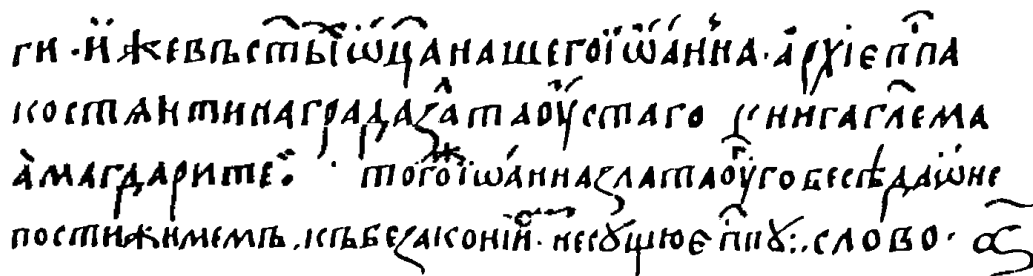 ги · и҆же въ ст҃ы́ и҆ ѡ҆ц҃а нашего і҆ѡа́нна · а҆рхїєп҇па
костѧнтина града ꙁла҇таоу҆стаго книга гл҃ема
а҆ маргарите҇ : того҇ж і҆ѡа́нна ꙁлатаоу҇го бесѣда ѡ҆ не
постижимемъ . къ беꙁаконїи҇ · не сꙋщю є҆п҇пꙋ :. слово · а҃